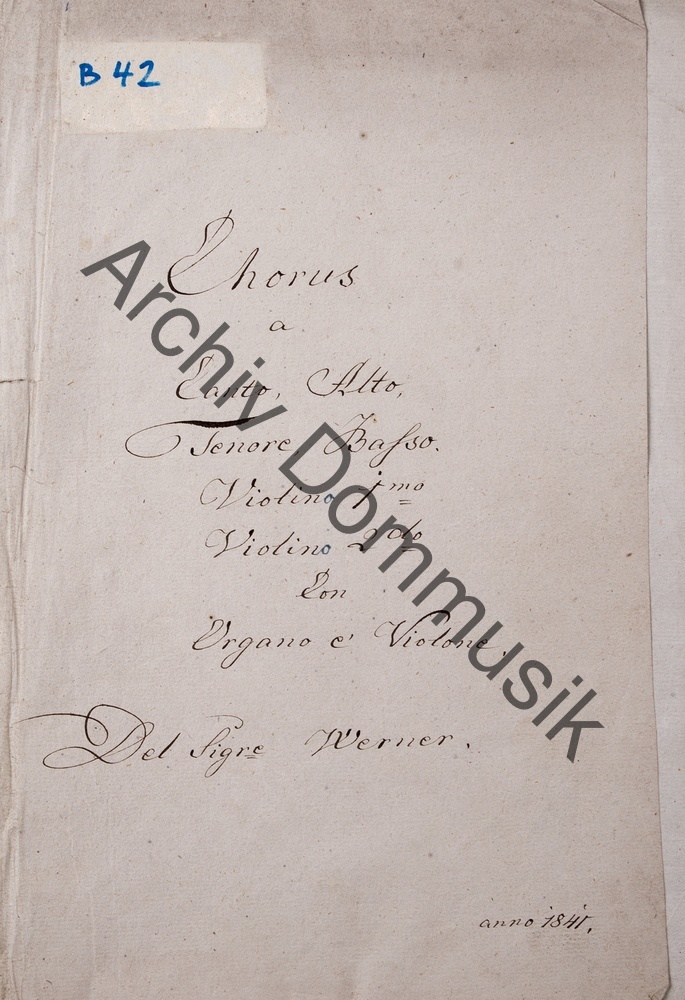 B 42
Chorus
a
Canto, Alto,
Tenore, Basso.
Violino 1mo
Violino 2do
Con
Organo e' Violone.
Del Sigre Werner.
anno 1841.
Archiv Dommusik